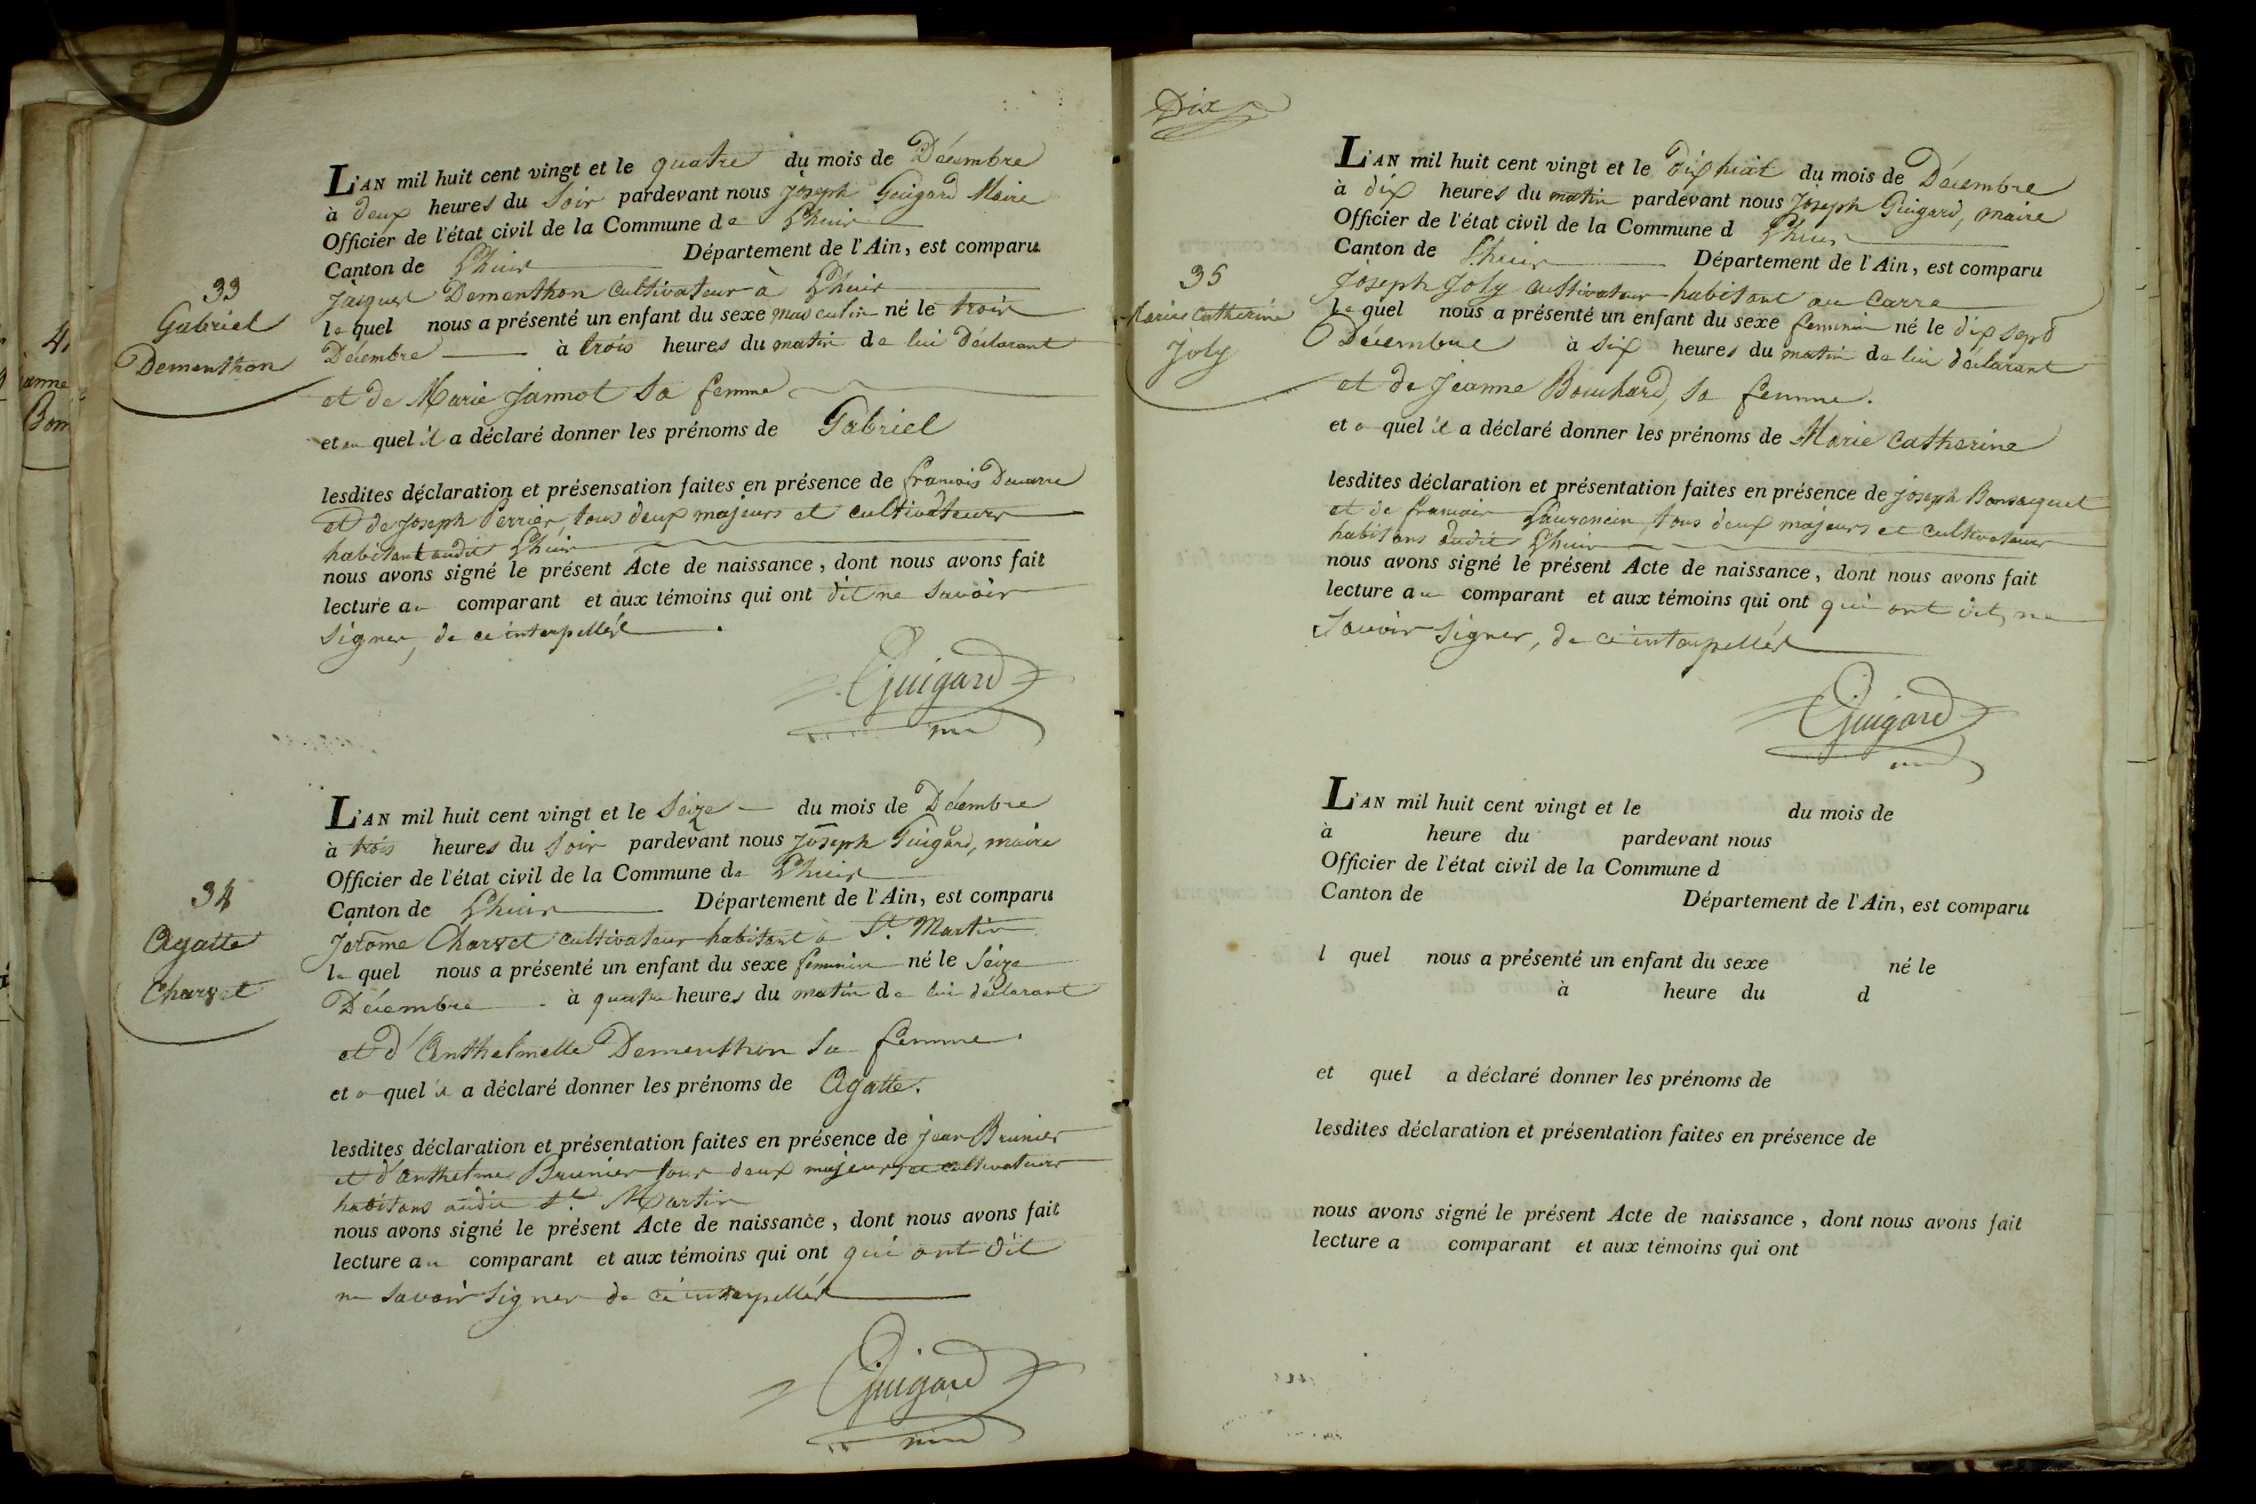 33
Gabriel
Dementhon
L'AN mil huit cent vingt et le quatre du mois de Décembre
à deux heures du soir pardevant nous Joseph Guigard Maire
Officier de l'état civil de la Commune de Lhuis
Canton de Lhuis Département de l'Ain, est comparu
Jacques Dementhon cultivateur à Lhuis
le quel nous a présenté un enfant du sexe masculin né le trois
Décembre à trois heures du matin de lui déclarant
et de Marie Jannot sa femme
et au quel il a déclaré donner les prénoms de Gabriel
lesdites déclaration et présensation faites en présence de francois
et de Joseph Perrier, tous deux majeurs et cultivateurs
habitant audit Lhuis
nous avons signé le présent Acte de naissance, dont nous avons fait
lecture au comparant et aux témoins qui ont dit ne savoir
signer, de ce interpellés.
Guigard
34
Agatte
Charvet
L'AN mil huit cent vingt et le seize du mois de Décembre
à trois heures du soir pardevant nous Joseph Guigard, maire
Officier de l'état civil de la Commune de Lhuis
Canton de Lhuis Département de l'Ain, est comparu
Jérome Charvet cultivateur habitant à St. Martin
le quel nous a présenté un enfant du sexe feminin né le seize
Décembre à quatre heures du matin de lui déclarant
et d'Anthelmette Dementhon sa femme.
et a quel il a déclaré donner les prénoms de Agatte.
lesdites déclaration et présentation faites en présence de jean Brunier
et d'anthelme Brunier tous deux majeurs et cultivateurs
habitans audit St. Martin
nous avons signé le présent Acte de naissance, dont nous avons fait
lecture au comparant et aux témoins qui ont qui ont dit
ne savoir signer de ce interpellés
Guigard
Dix
35
Marie Catherine
Joly
L'AN mil huit cent vingt et le dix huit du mois de Décembre
à dix heures du matin pardevant nous Joseph Guigard, maire
Officier de l'état civil de la Commune d Lhuis
Canton de Lhuis Département de l'Ain, est comparu
Joseph Joly cultivateur habitant au Carre
le quel nous a présenté un enfant du sexe feminin né le dix sept
Décembre à six heures du matin de lui déclarant
et de Jeanne Bouchard, sa femme.
et a quel il a déclaré donner les prénoms de Marie Catherine
lesdites déclaration et présentation faites en présence de joseph
et de francois Laurencin, tous deux majeurs et cultivateurs
habitans audit Lhuis
nous avons signé le présent Acte de naissance, dont nous avons fait
lecture au comparant et aux témoins qui ont qui ont dit, ne
savoir signer, de ce interpellés
Guigard
L'AN mil huit cent vingt et le du mois de
à heure du pardevant nous
Officier de l'état civil de la Commune d
Canton de Département de l'Ain, est comparu
l quel nous a présenté un enfant du sexe né le
à heure du d
et quel a déclaré donner les prénoms de
lesdites déclaration et présentation faites en présence de
nous avons signé le présent Acte de naissance, dont nous avons fait
lecture a comparant et aux témoins qui ont